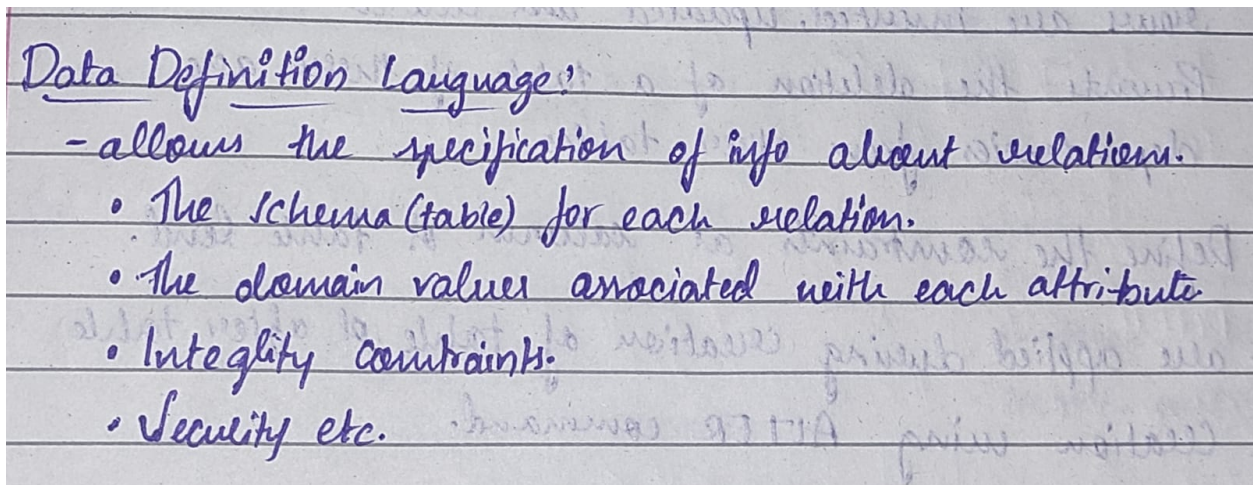 Data Definition Language:
- allows the specification of info about relations.
• The schema (table) for each relation.
• The domain values associated with each attribute.
• Integrity constraints.
• Security etc.